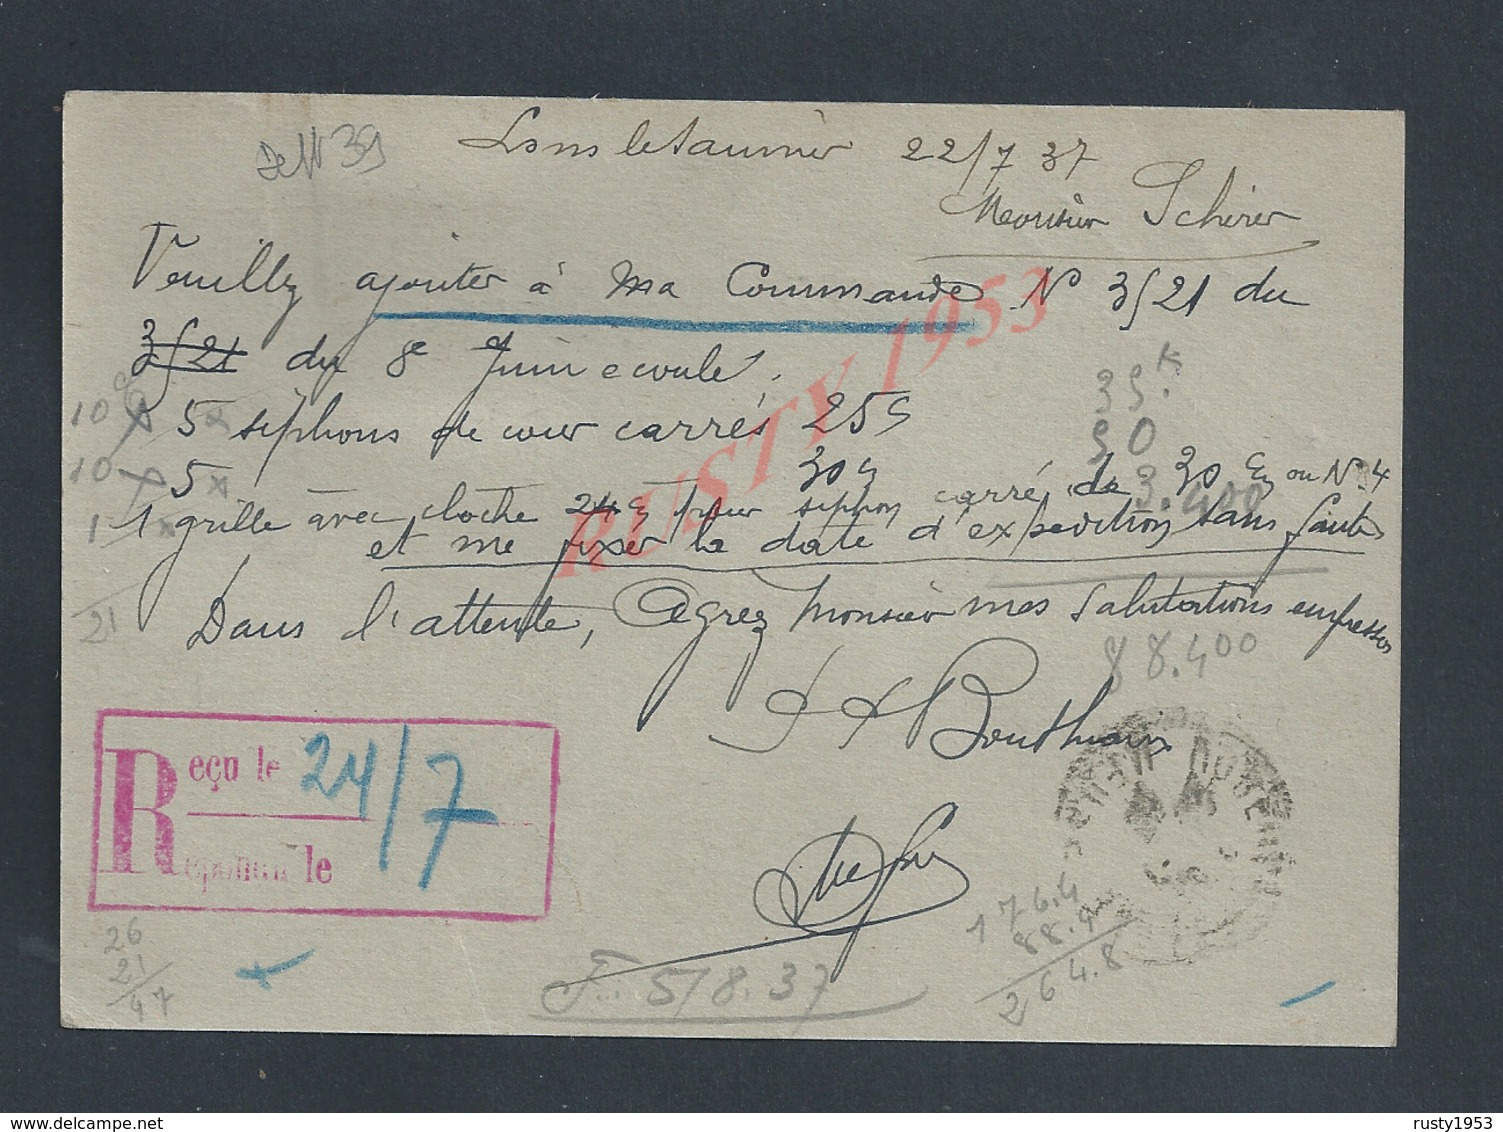 Lons le Saunier 22/7 37
Monsieur Scherer
Veuillez ajouter à ma Commande N° 3521 du
3521 du 8e Juin ecoulé.
10 5 siphons de cour carrés 25
10 5 30
1 1 grille avec cloche 24 pour siphon carré de 30 ou N° 4
et me fixer la date d'expedition sans faute
21
Dans l'attente, Agréez Monsieur mes Salutations empressées
35.k
50
3.400
88.400
Reçu le 24/7
Répondu le
26
21
47
5/8.37
176.4
88.4
264.8
RUSTY 1953
rusty1953
delcampe.net